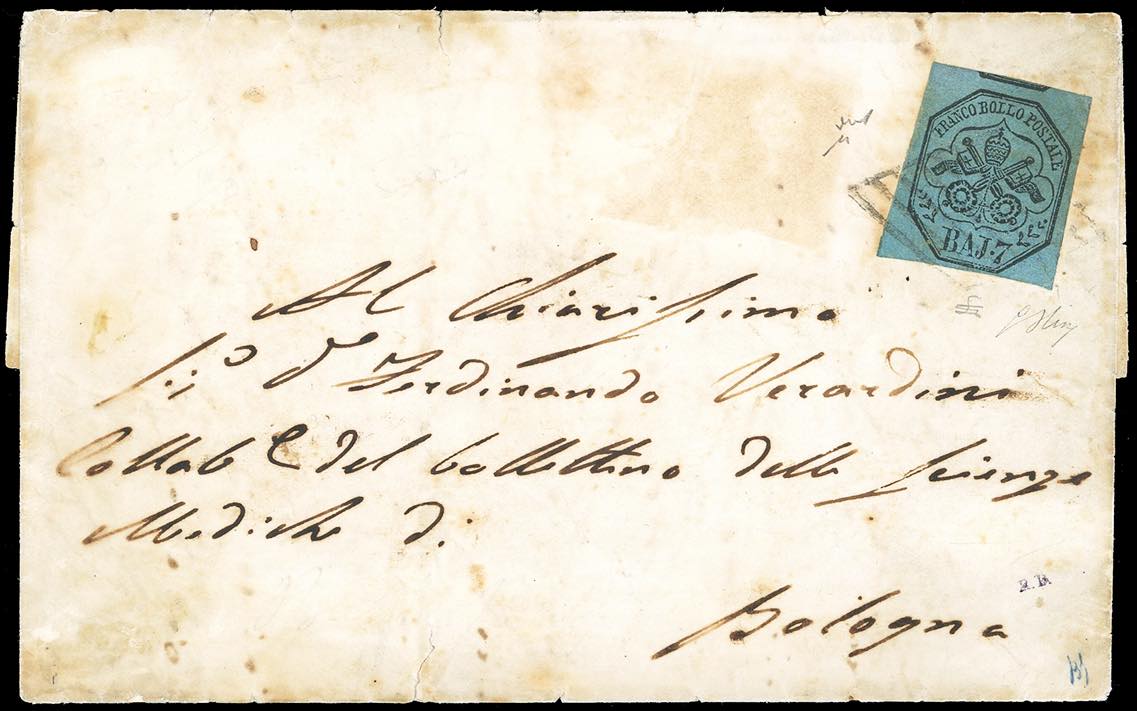 FRANCO BOLLO POSTALE
BAJ. 7
Al Chiarissimo
Sig.o Dr Ferdinando Verardini
Collab.e del bollettino delle Scienze
Mediche di
Bologna